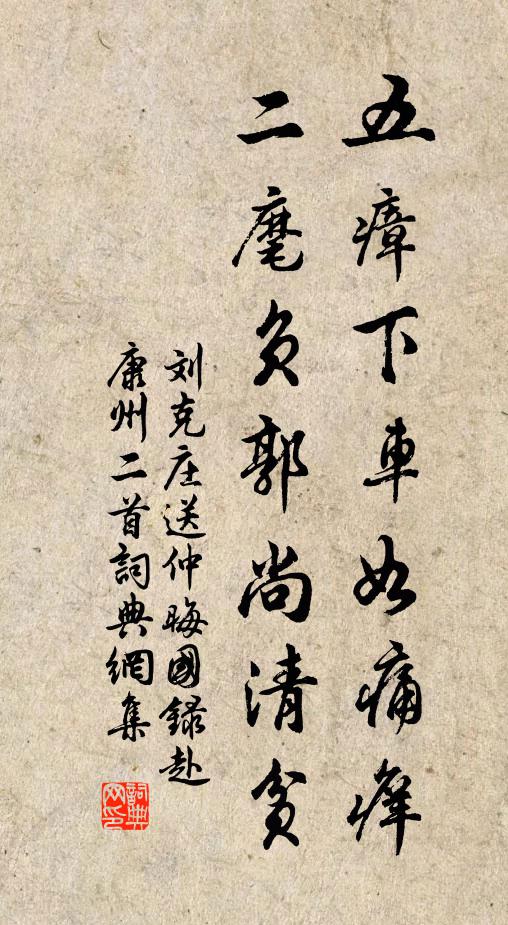 五瘴下車如痛痒
二麾负郭尚清贫
刘克庄送仲晦國録赴
康州二首詞典網集
詞典网印